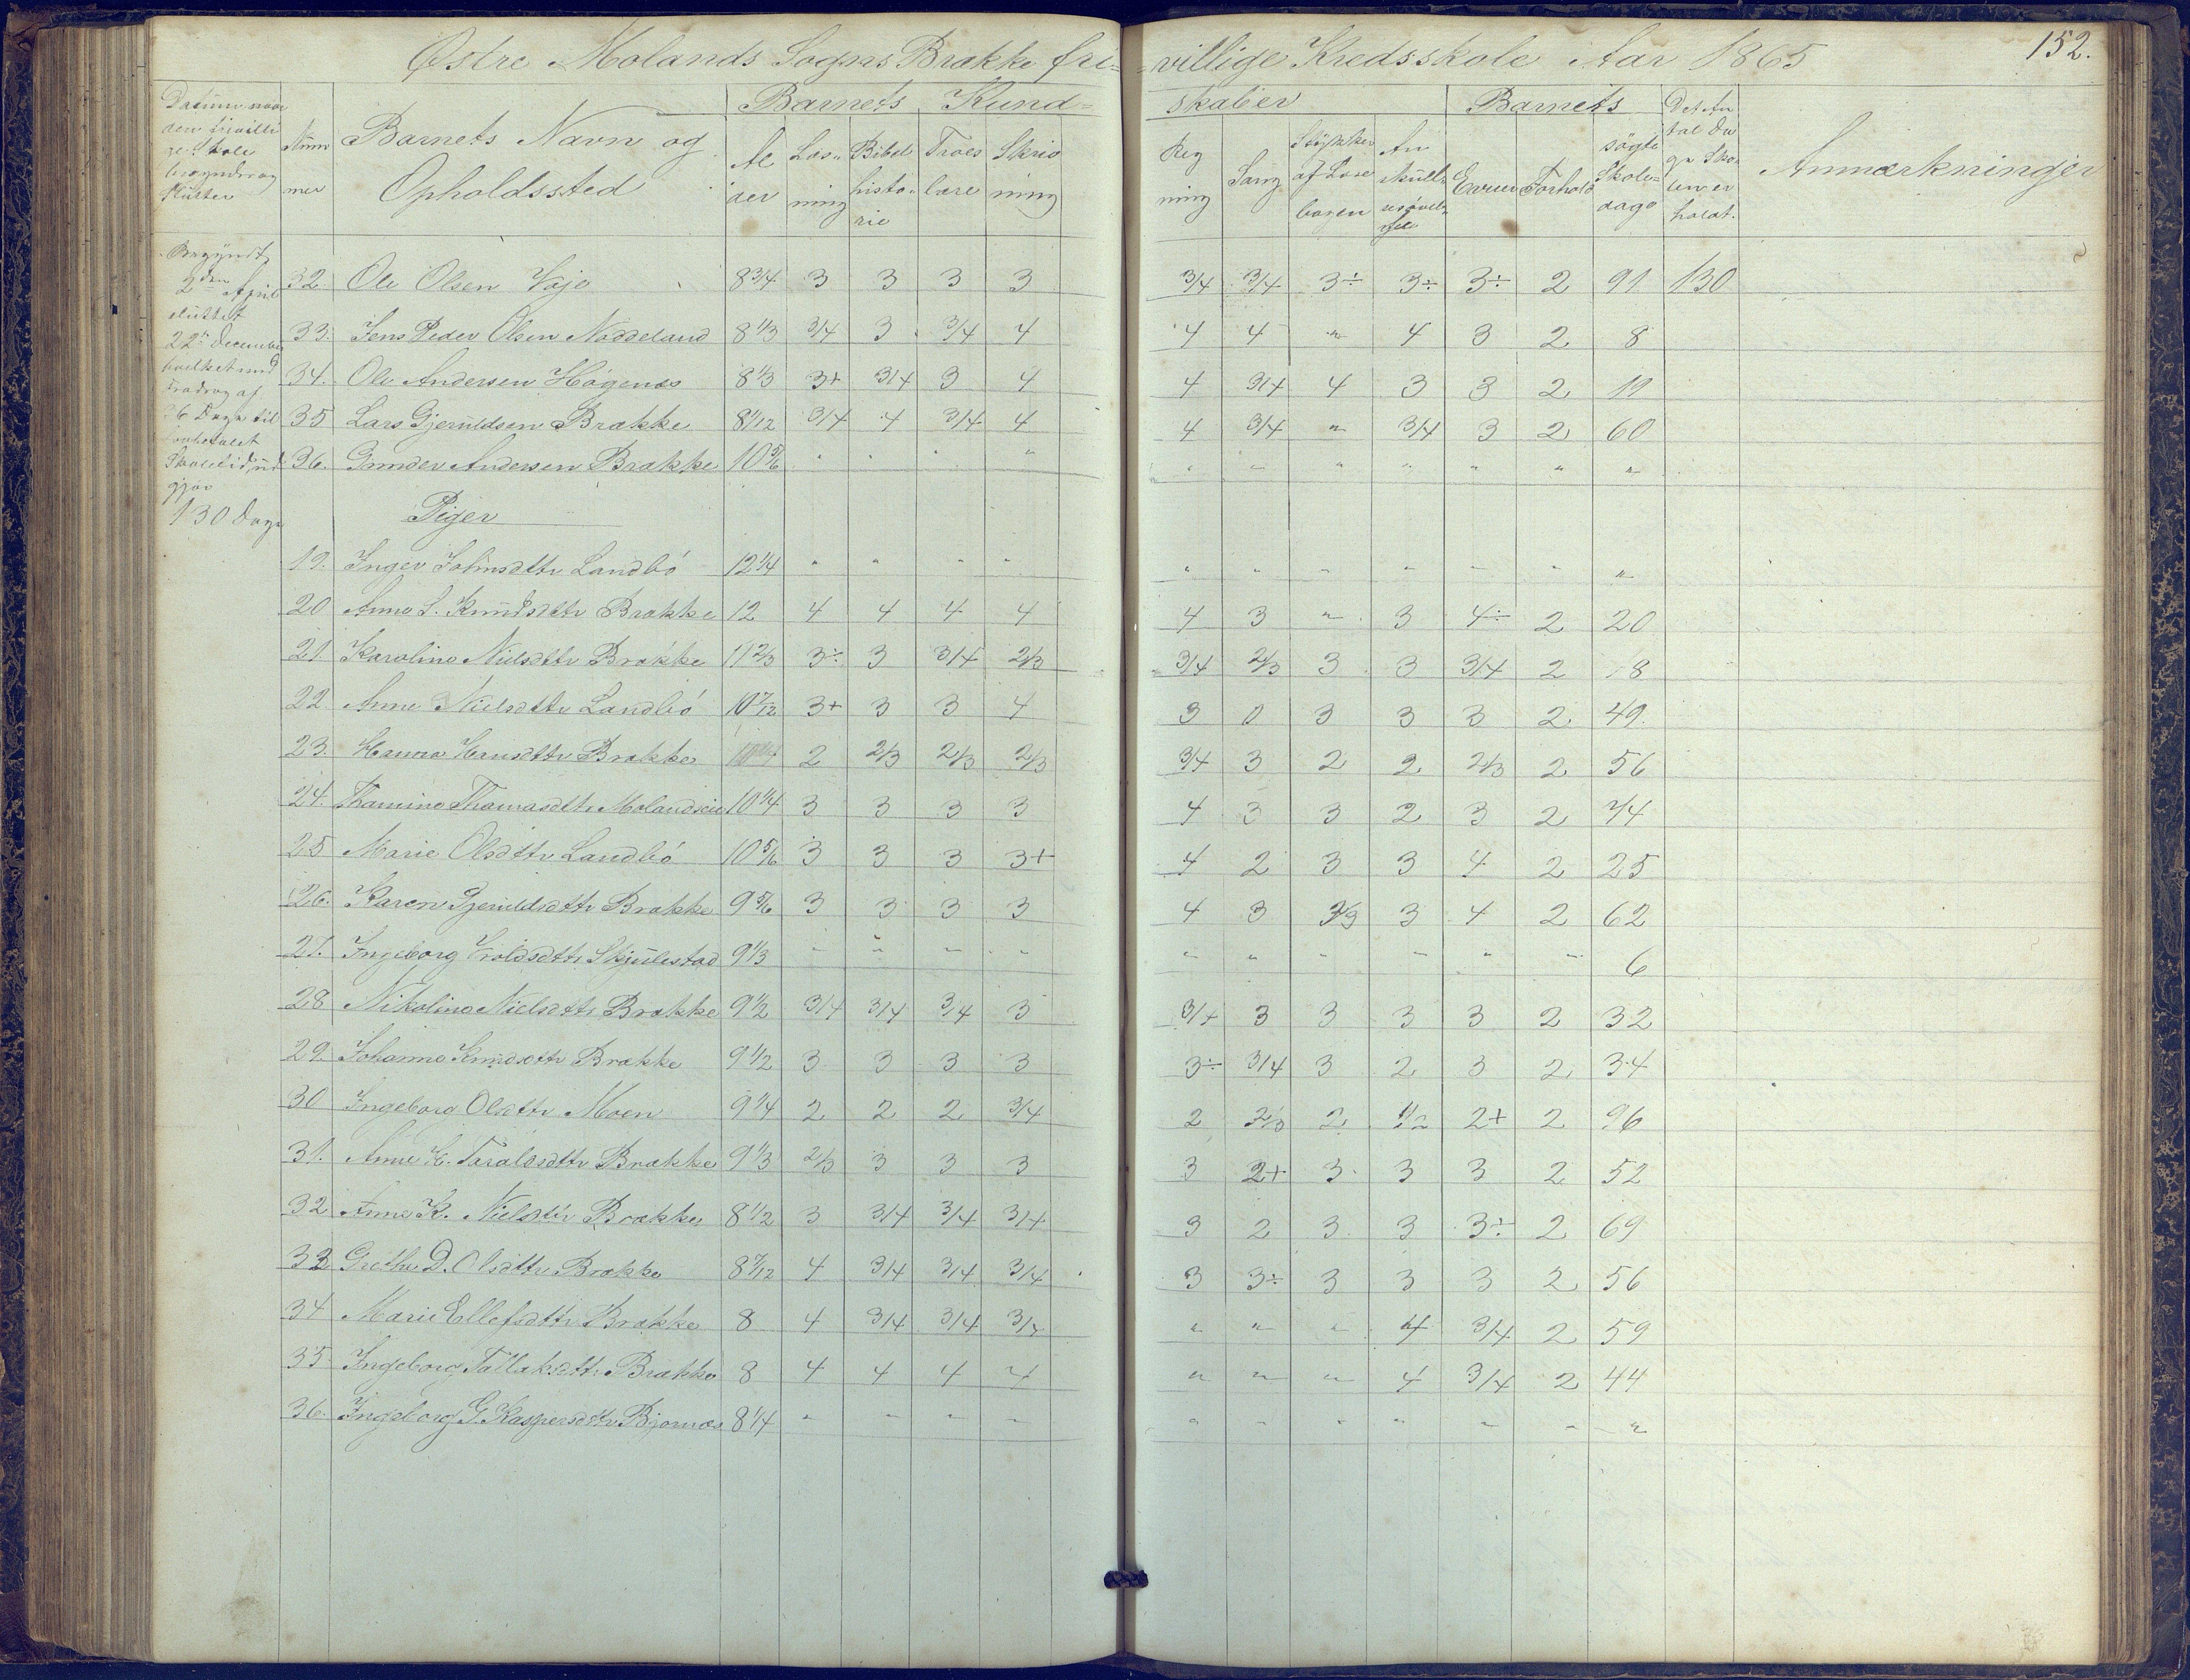 Østre Molands Sogns Brække fri= =villige Kredsskole Aar 1865 152.
Datum naar den frivillige Skole begynder og slutter
Nummer
Barnets Navn og Opholdssted
Barnets Kund= skaber
Alder
Læsning
Bibelhistorie
Troeslære
Skrivning
Regning
Sang
Stykker af Læsebogen
Barnets
Evner
Forhold
søgte Skoledage
Det Antal Dage Skolen er holdt.
Anmærkninger
Begyndt 2den April sluttet 22de December hvilket med Fradrag af 26 Dage til Skoletid, udgjør 130 Dage
32. Ole Olsen Vaje 8 3/4 3 3 3 3 3/4 3/4 3÷ 3÷ 3÷ 2 91 130
33. Jens Peder Olsen Noddeland 8 1/3 3/4 3 3/4 4 4 4 " 4 3 2 8
34. Ole Andersen Høgenæs 8 1/3 3+ 3/4 3 4 4 3/4 4 3 3 2 19
35 Lars Gjeruldsen Brække 8 1/12 3/4 4 3/4 4 4 3/4 " 3/4 3 2 60
36. Gunder Andersen Brække 10 5/6 " " " " " " " " " " "
Piger
19. Inger Johnsdttr Landbö 12 1/4 " " " " " " " " " " "
20 Anne S. Knudsdttr Brække 12 4 4 4 4 4 3 " 3 4÷ 2 20
21 Karoline Nielsdttr Brække 11 2/3 3÷ 3 3/4 2/3 3/4 2/3 3 3 3/4 2 18
22 Anne Nielsdttr Landbö 10 7/12 3+ 3 3 4 3 0 3 3 3 2 49.
23. Hanna Hansdttr Brække 2 2/3 2/3 2/3 3/4 3 2 2 2/3 2 56
24. Thomine Thomasdttr 10 1/4 3 3 3 3 4 3 3 2 3 2 74
25 Marie Olsdttr Landbö 10 5/6 3 3 3 3+ 4 2 3 3 4 2 25
26. Karen Gjeruldsdttr Brække 9 5/6 3 3 3 3 4 3 2/3 3 4 2 62
27. Ingeborg Skjulestad 9 1/3 " " " " " " " " " " 6
28 Nikoline Nielsdttr Brække 9 1/2 3/4 3/4 3/4 3 3/4 3 3 3 3 2 32
29. Johanne Knudsdttr Brække 9 1/2 3 3 3 3 3÷ 3/4 3 2 3 2 34
30 Ingeborg Olsdttr Moen 9 1/4 2 2 2 3/4 2 2/3 2 1/2 2+ 2 96
31. Anne H. Taraldsdttr Brække 9 1/3 2/3 3 3 3 3 2+ 3 3 3 2 52
32 Anne K. Nielsdttr Brække 8 1/2 3 3/4 3/4 3/4 3 2 3 3 3÷ 2 69
33 Grethe D. Olsdttr Brække 8 7/12 4 3/4 3/4 3/4 3 3÷ 3 3 3 2 56
34 Marie Ellefsdttr Brække 8 4 3/4 3/4 3/4 " " " 4 3/4 2 59
35 Ingeborg Tallaksdttr Brække 8 4 4 4 4 " " " 4 3/4 2 44
36. Ingeborg G. Kaspersdttr Bjornæs 8 1/4 " " " " " " " " " " "